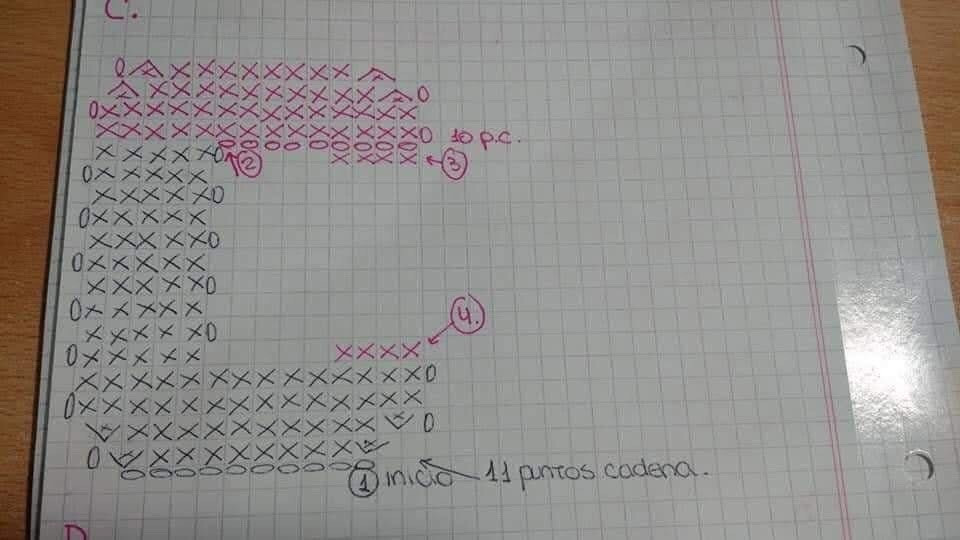 C.
10 p.c.
2
3
4.
1 inicio 11 puntos cadena.
D